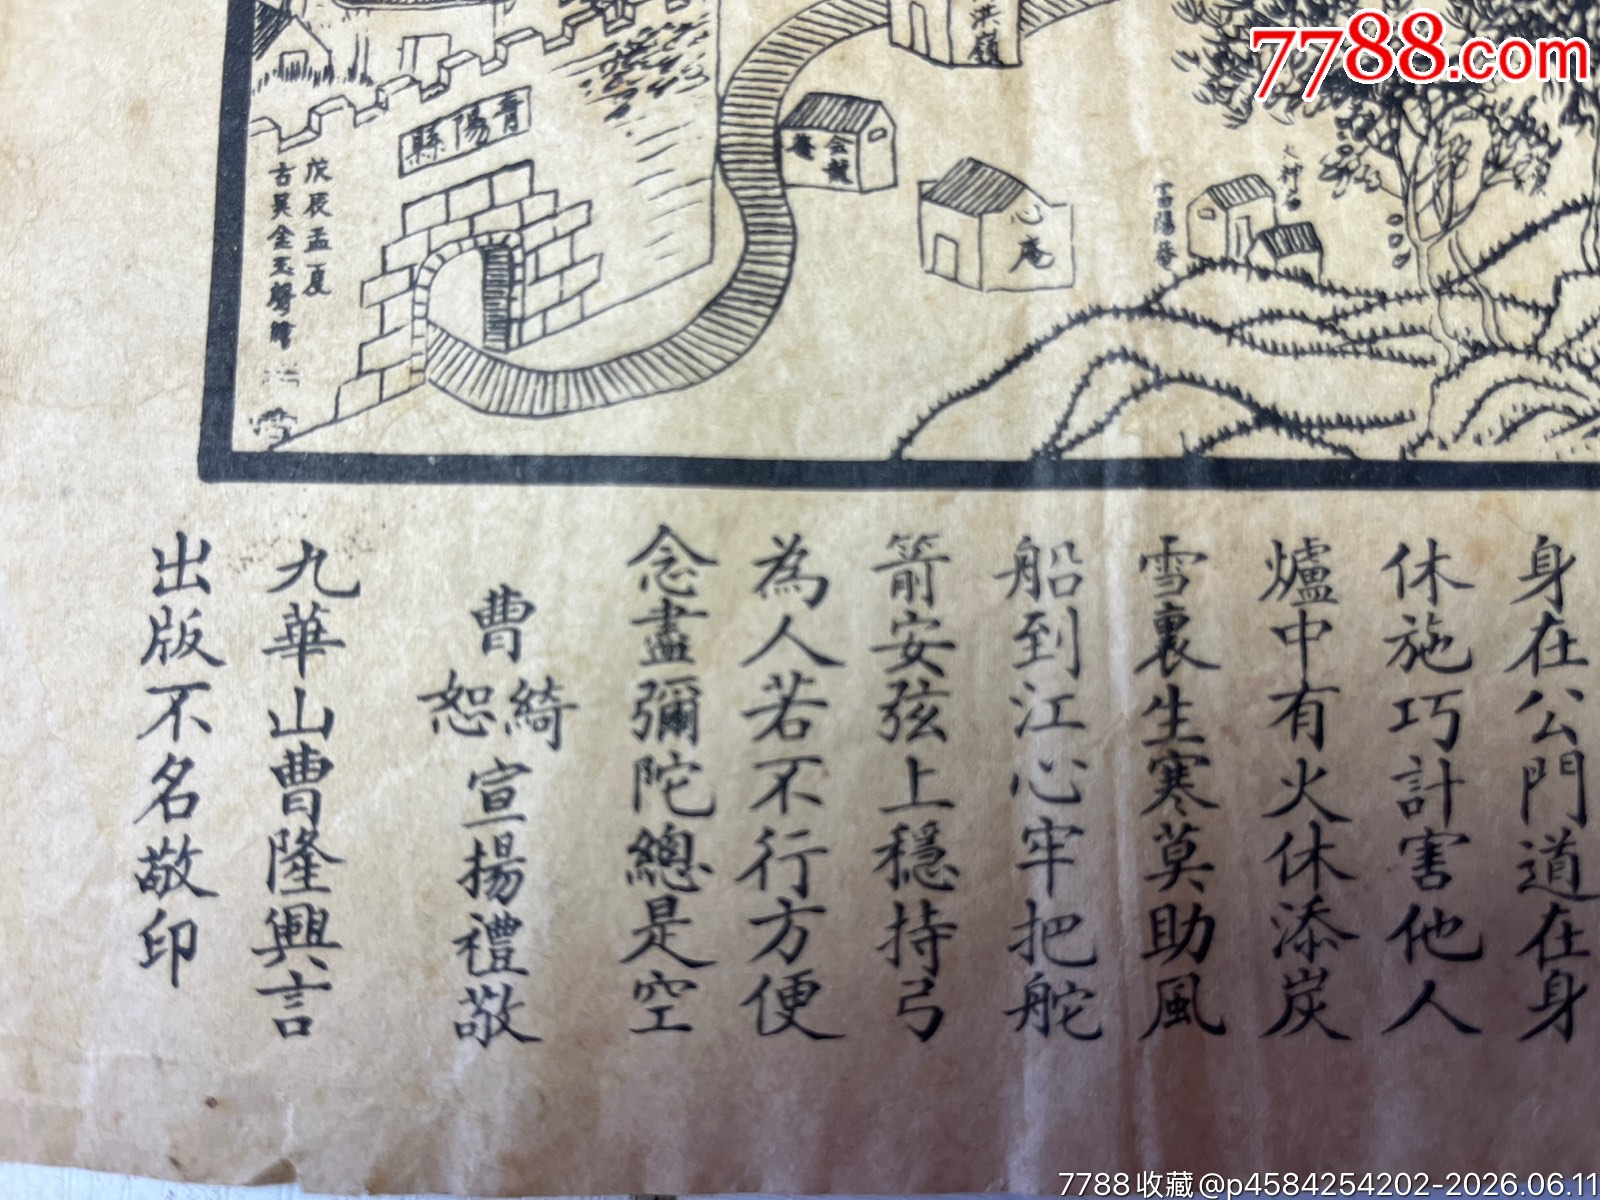 7788.com
洪嶺
青陽縣
金龍菴
心庵
富陽菴
戊辰孟夏
古吳金玉聲繪
身在公門道在身
休施巧計害他人
爐中有火休添炭
雪裏生寒莫助風
船到江心牢把舵
箭安弦上穩持弓
為人若不行方便
念盡彌陀總是空
曹綺恕宣揚禮敬
九華山曹隆興言
出版不名敬印
7788收藏@p4584254202-2026.06.11